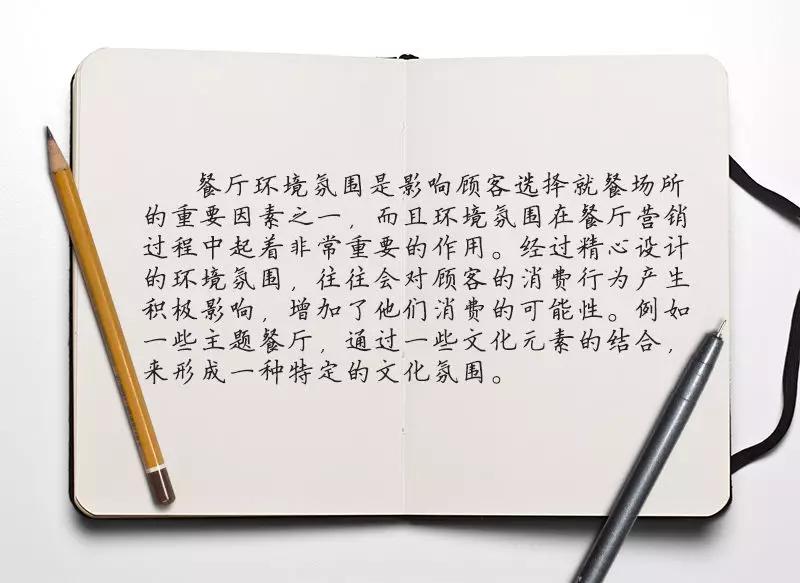 餐厅环境氛围是影响顾客选择就餐场所
的重要因素之一，而且环境氛围在餐厅营销
过程中起着非常重要的作用。经过精心设计
的环境氛围，往往会对顾客的消费行为产生
积极影响，增加了他们消费的可能性。例如
一些主题餐厅，通过一些文化元素的结合，
来形成一种特定的文化氛围。